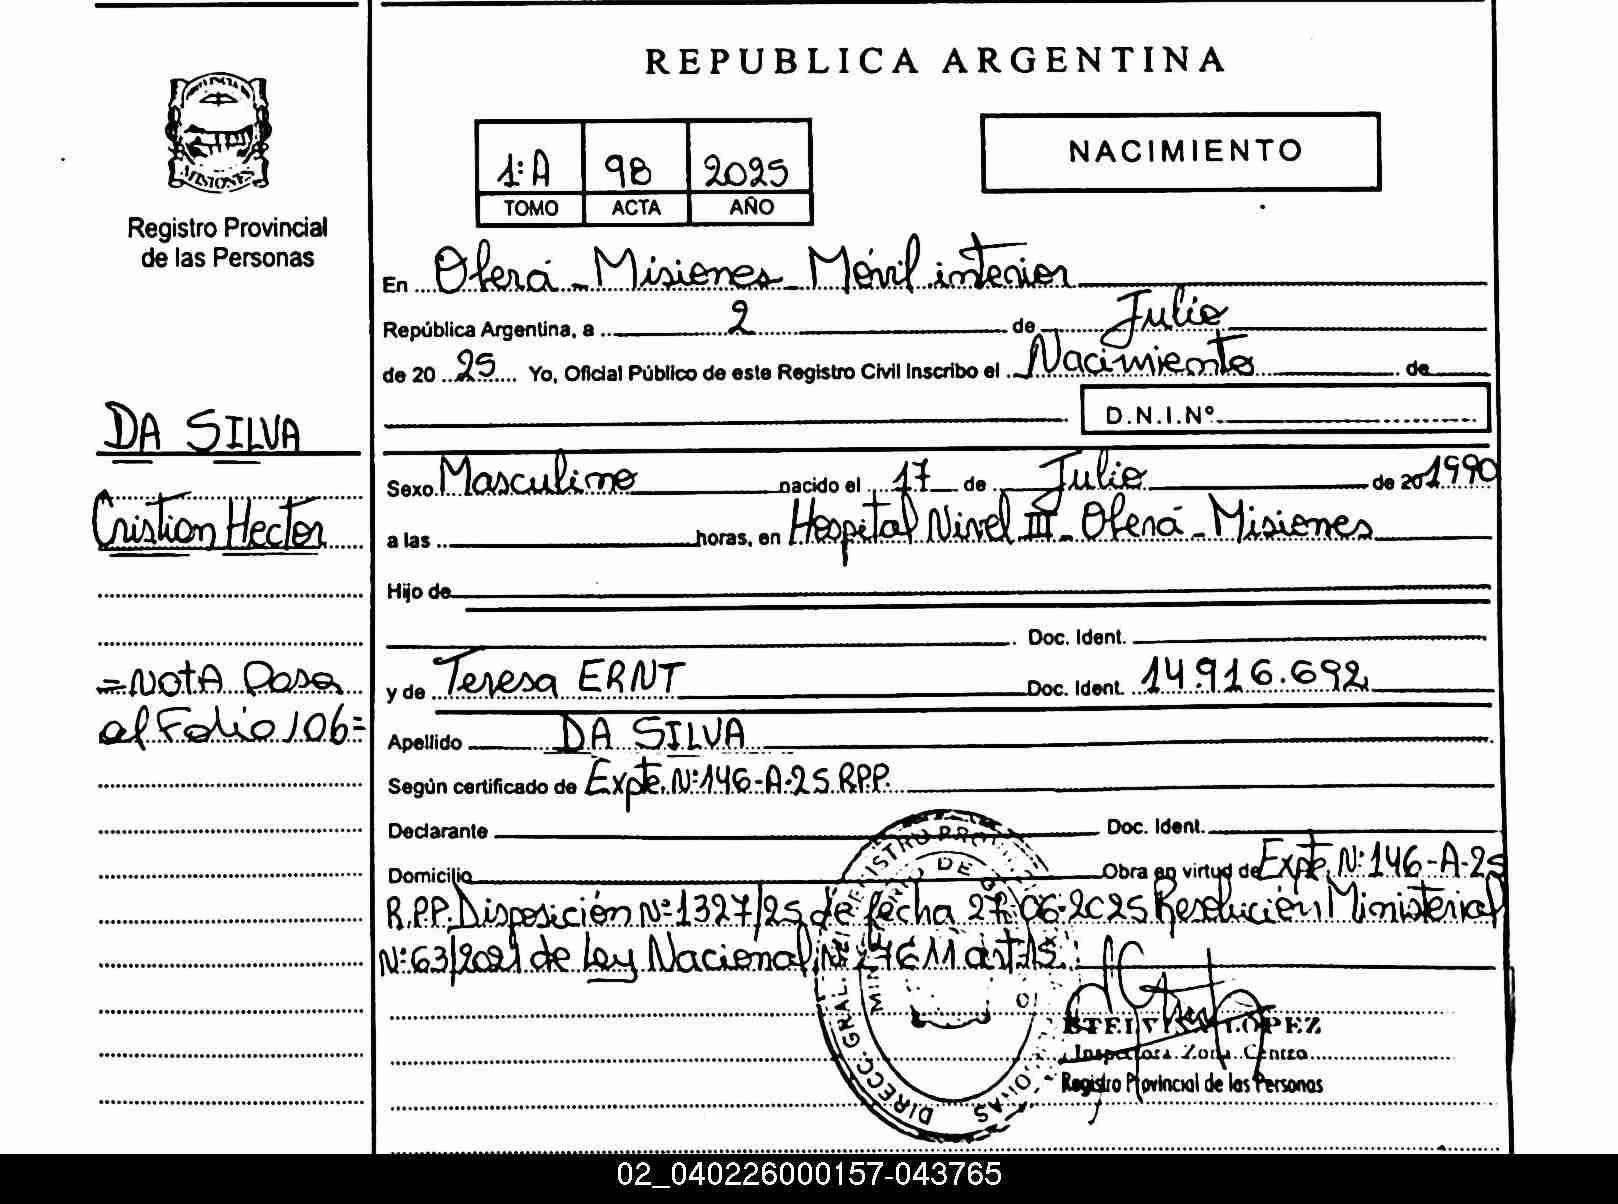 REPUBLICA ARGENTINA
MISIONES
Registro Provincial
de las Personas
1:A 98 2025
TOMO ACTA AÑO
NACIMIENTO
En Oberá - Misiones - Móvil interior
República Argentina, a 2 de Julio
de 20 25 Yo, Oficial Público de este Registro Civil Inscribo el Nacimiento de
D.N.I.Nº
DA SILVA
Cristian Hector
Sexo Masculino nacido el 17 de Julio de 20 1990
a las horas, en Hospital Nivel III - Oberá - Misiones
Hijo de
Doc. Ident.
y de Teresa ERNT Doc. Ident. 14.916.692
=Nota Pasa
al Folio 106=
Apellido DA SILVA
Según certificado de Expte. Nº 146-A-25 R.P.P.
Declarante Doc. Ident.
Domicilio Obra en virtud de Expte. Nº 146-A-25
R.P.P. Disposición Nº 1327/25 de fecha 27-06-2025 Resolución Ministerial
Nº 63/2021 de Ley Nacional Nº 27611 art
LOPEZ
Inspectora Zona Centro
Registro Provincial de las Personas
DIRECC. GRAL.
02_040226000157-043765